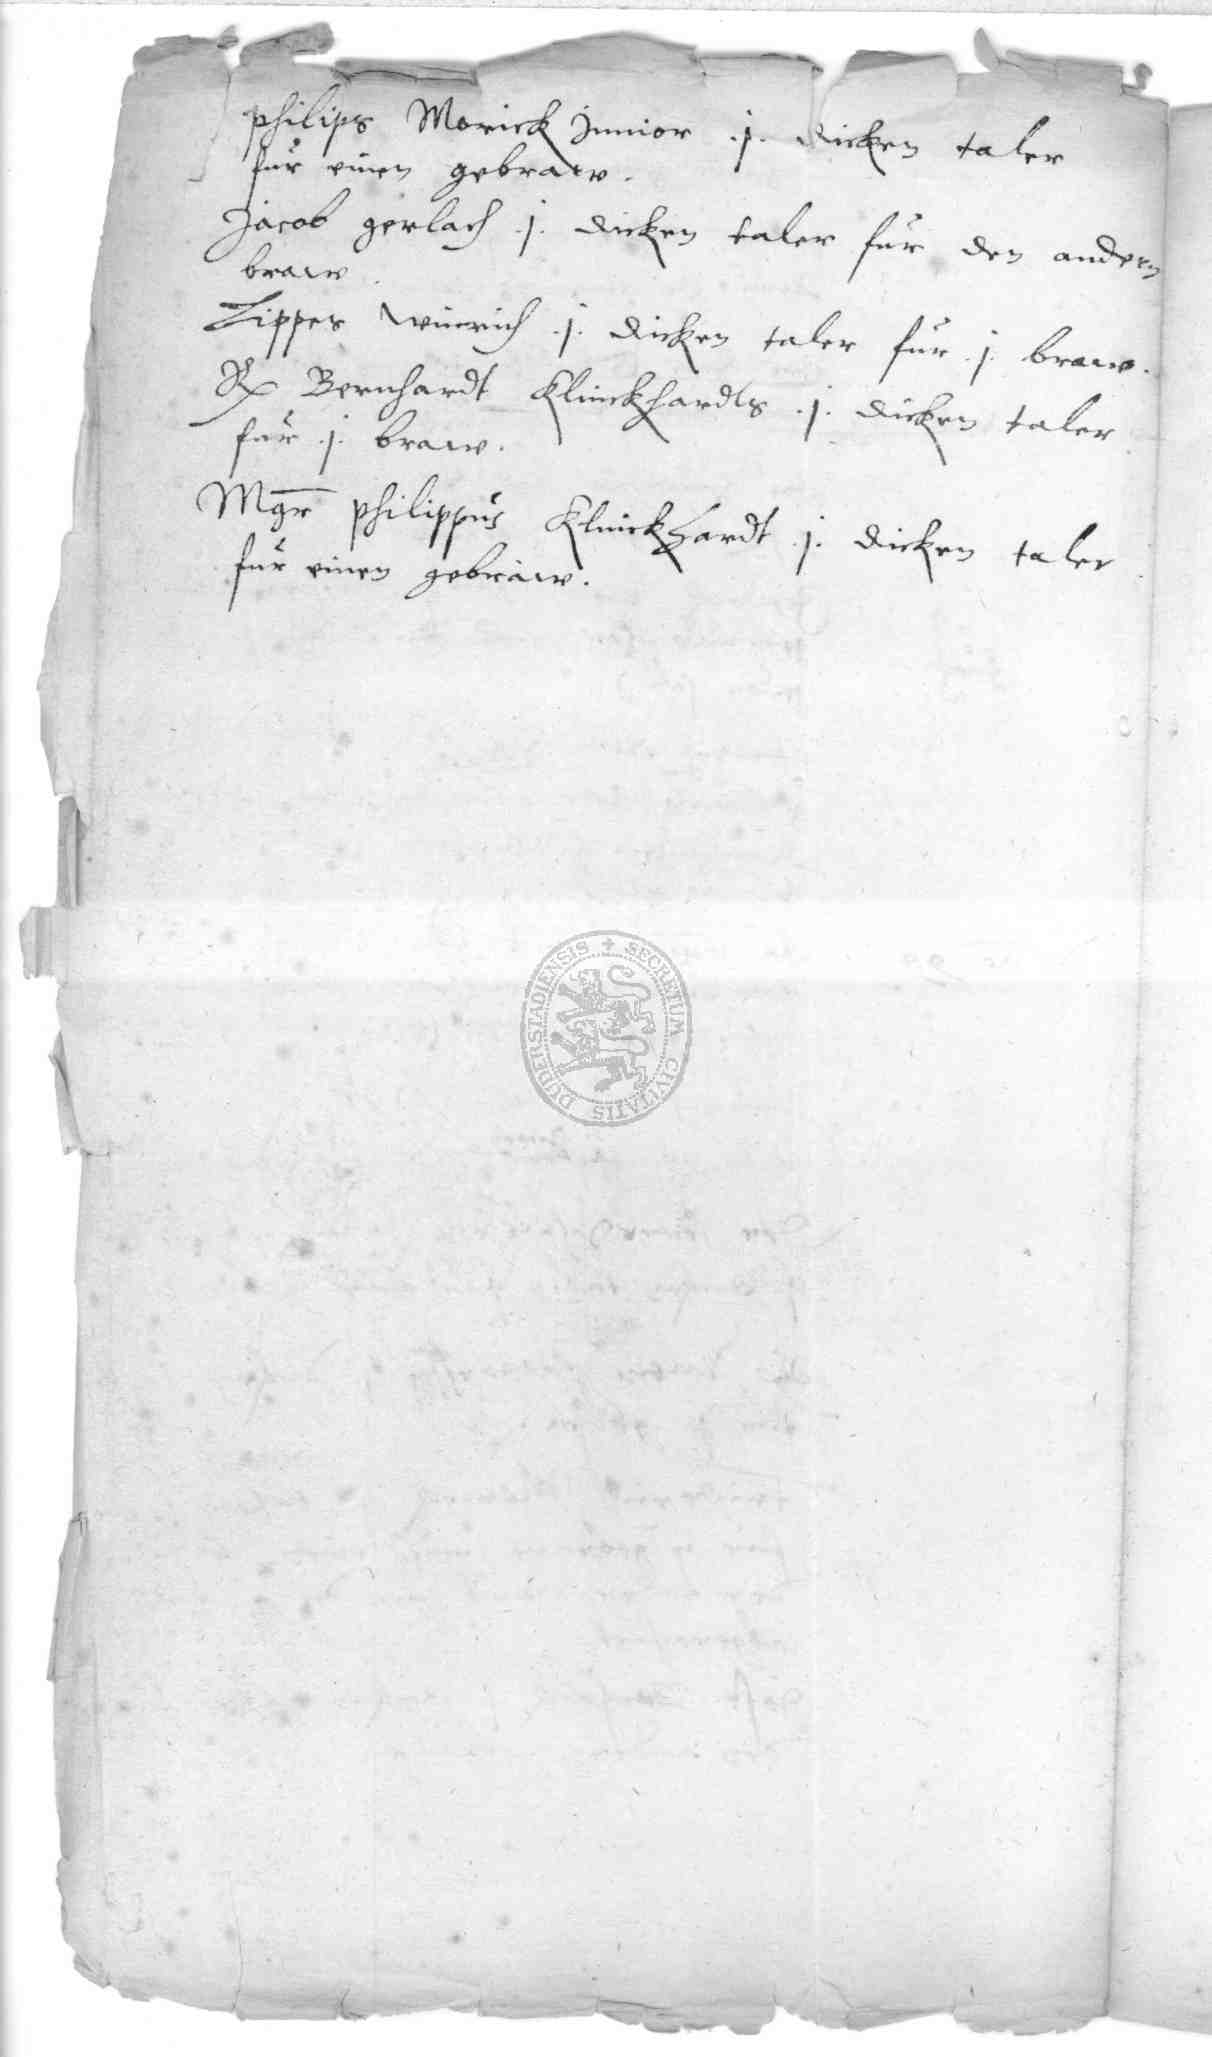 philips Morick Junior .j. dicken taler
für einen gebraw.
Jacob gerlach .j. dicken taler für den andern
braw.
Lippes Winrich .j. dicken taler für .j. braw.
Bernhardt Klinckhardts .j. dicken taler
für .j. braw.
Mgr philippus Klinckhardt .j. dicken taler
für einen gebraw.
SECRETUM CIVITATIS DUDERSTADIENSIS